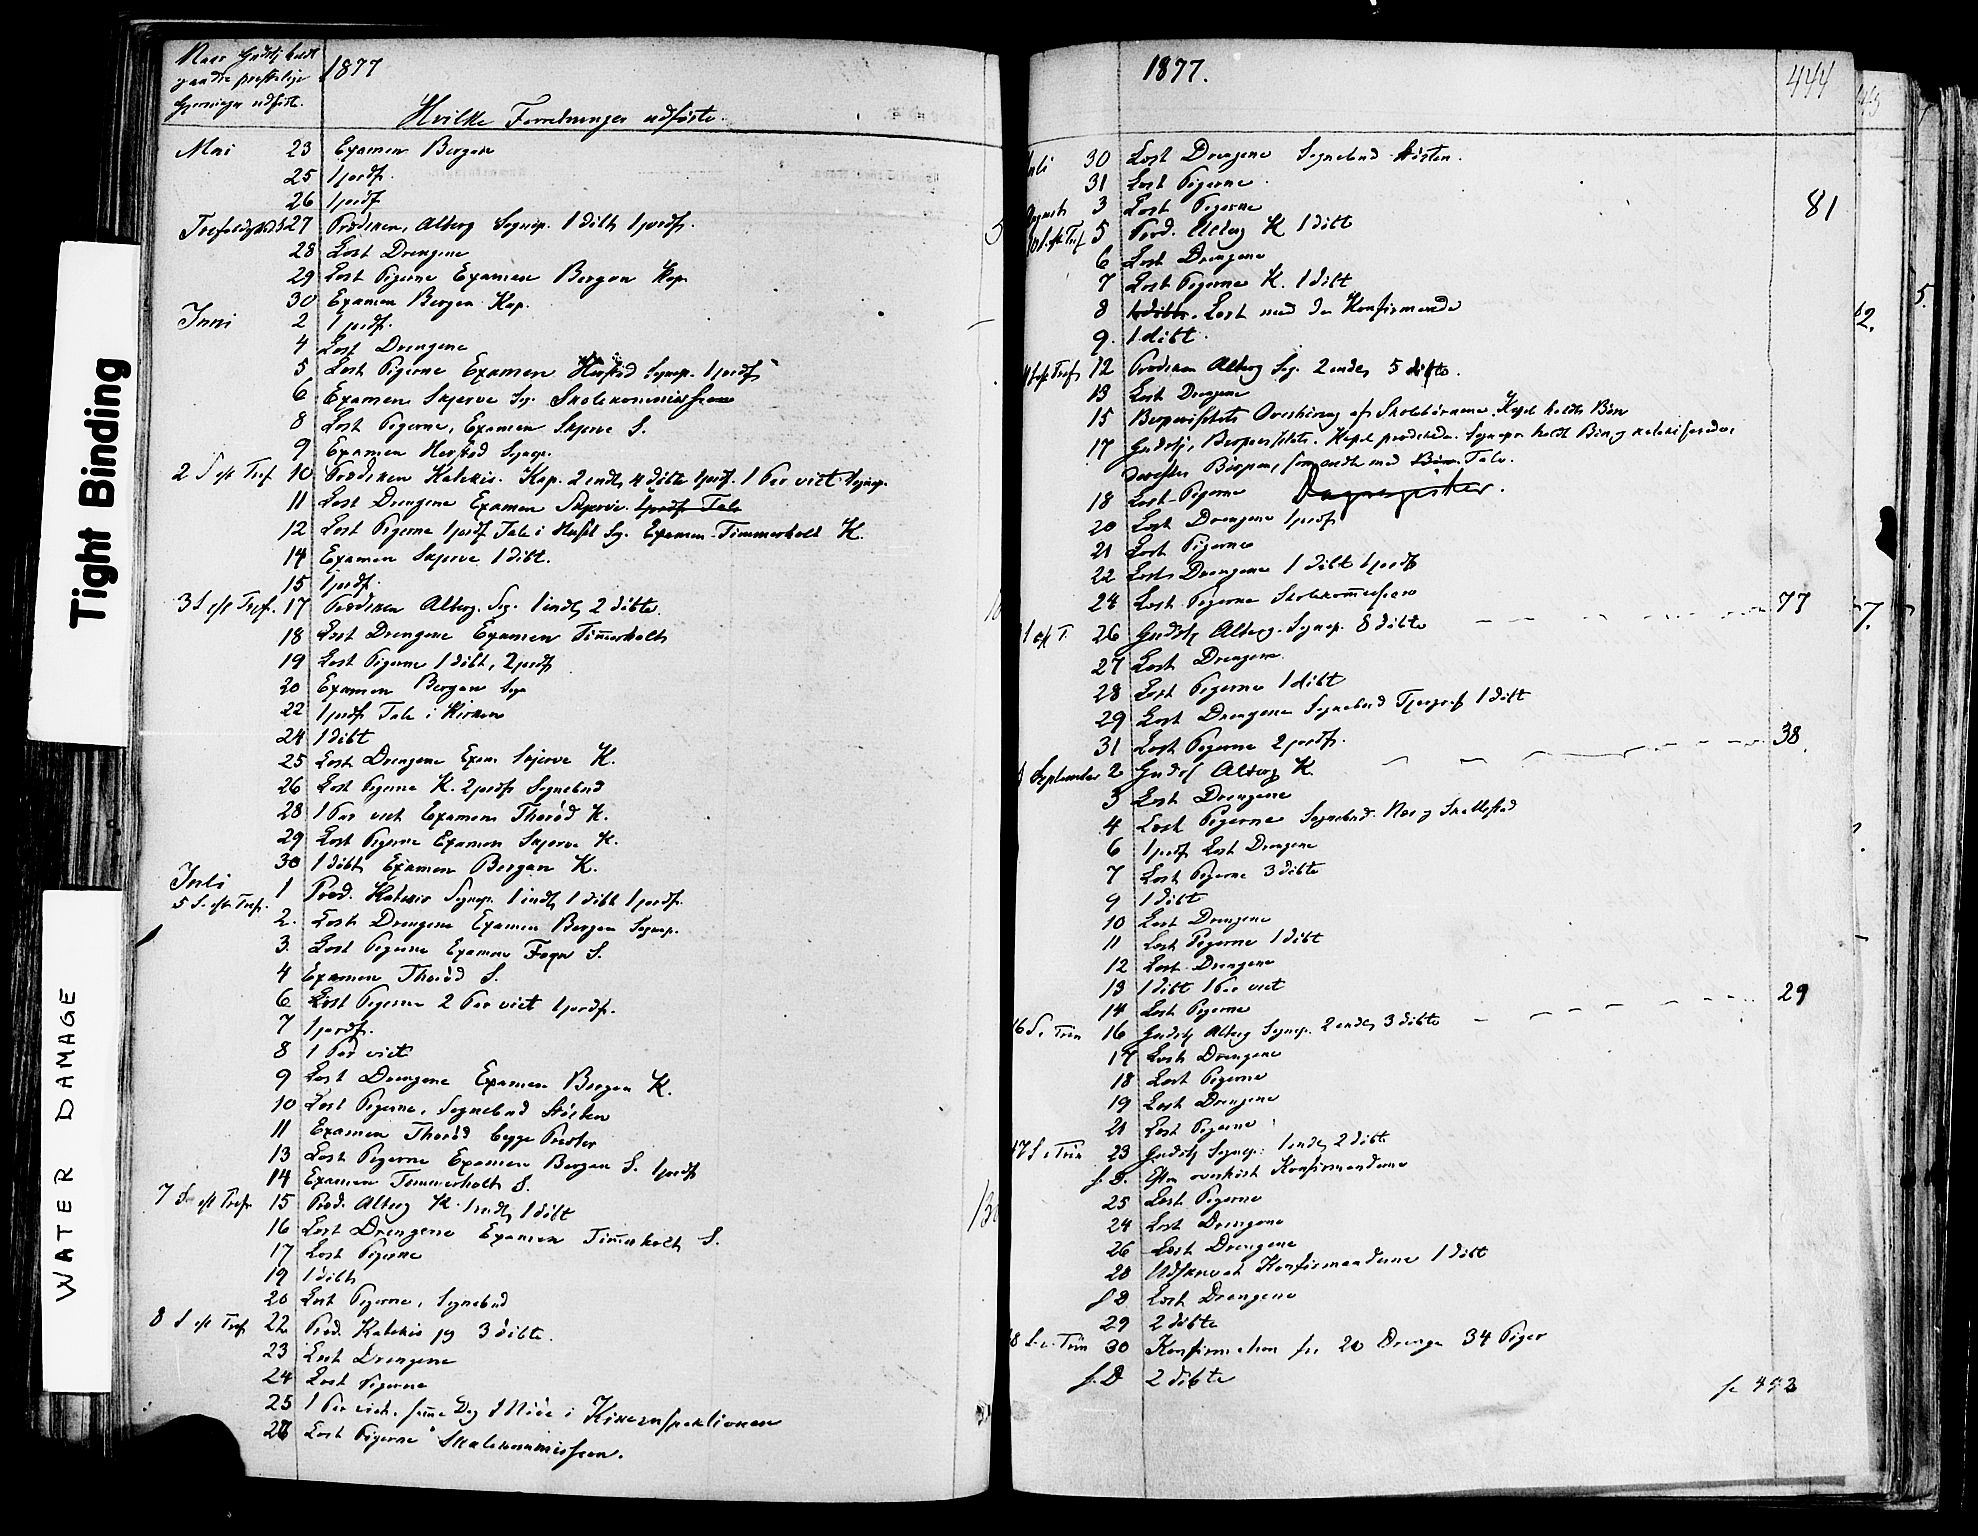 Tight Binding
WATER DAMAGE
Naar
1877
Hvilke Forretninger udförte.
Mai 23 Examen Bergan
25 1 jordf.
26 1 jordf
27 Prædiken, Altberg Sognep. 1 döbt 1 jordf.
28 Læst Drengene
29 Læst Pigerne Examen Bergan Kap
30 Examen Bergan Kap.
Juni 2 1 jordf.
4 Læst Drengene
5 Læst Pigerne Examen Herstad Sognep. 1 jordf
6 Examen Skjerve Sg. Skolekommission
8 Læst Pigerne, Examen Skjerve S.
9 Examen Herstad Sognep.
2 S eft Tref 10 Prædiken Katekis. Kap. 2 indl, 4 döbte 1 jordf. 1 Par viet Sognep.
11 Læst Drengene Examen Skjerve. 1 jordf Tale
12 Læst Pigerne 1 jordf Tale i Huset Sg. Examen Timmerholt K.
14 Examen Skjerve 1 döbt.
15 1 jordf.
3 S eft Tref. 17 Prædiken Altberg. Sg. 1 indl, 2 döbte
18 Læst Drengene Examen Tim̅erholt
19 Læst Pigerne 1 döbt, 2 jordf
20 Examen Bergan Sgn
22 1 jordf Tale i Kirken
24 1 döbt
25 Læst Drengene Exam. Skjerve K.
26 Læst Pigerne K. 2 jordf Sognebud
28 1 Par viet Examen Thoröd K.
29 Læst Pigerne Examen Skjerve K.
30 1 döbt, Examen Bergan K.
Juli
5 S. eft Tref. 1 Præd. Katekis Sognep. 1 indl, 1 döbt 1 jordf.
2. Læst Drengene Examen Bergan Sognep.
3. Læst Pigerne Examen Fegn S.
4 Examen Thoröd S.
6 Læst Pigerne 2 Par viet 1 jordf.
7 1 jordf.
8 1 Par viet
9 Læst Drengene Examen Bergan K.
10 Læst Pigerne, Sognebud Hösten
11 Examen Thoröd begge Prester
13 Læst Pigerne Examen Bergan S. 1 jordf
14 Examen Timmerholt S.
7 S eft Tref 15 Præd. Altberg K. 1 indl, 1 döbt
16 Læst Drengene Examen Tim̅erholt S.
17 Læst Pigerne
19 1 döbt
20 Læst Pigerne, Sognebud
8 S eft Tref 22 Præd. Katekis og 3 döbte.
23 Læst Drengene
24 Læst Pigerne
25 1 Par viet. sam̅e Dag Möde i Kirkeinspektionen
28 Læst Pigerne Skolekommission.
1877. 444
30 Læst Drengene Sognebud Hösten.
31 Læst Pigerne
3 Læst Pigerne
81
5 Præd. Altberg K 1 döbt
6 Læst Drengene
7 Læst Pigerne K. 1 döbt
8 1 döbt. Læst med de Konfirmerede
9. 1 döbt.
12 Prædiken Altberg Sg. 2 indl, 5 döbte.
13 Læst Drengene
15 Bispevisitats Overhöring af Skolebörnene. Kapel. holdt Bön
17 Gudstj, Bispevisitats. Kapel prædikede. Sognepr holdt Bön og katekiserede,
derefter Bispen, som endte med Bön Tale.
18 Læst Pigerne
20 Læst Drengene 1 jordf
21 Læst Pigerne
22 Læst Drengene 1 döbt 1 jordf
24 Læst Pigerne Skolekom̅ission
26 Gudstj Altberg. Sognep. 8 döbte 77
27 Læst Drengene
28 Læst Pigerne 1 döbt
29 Læst Drengene Sognebud 1 döbt
31 Læst Pigerne 2 jordf.
September 2 Gudstj Altberg K. 38
3 Læst Drengene
4 Læst Pigerne Sognebud Nes og Skallestad
6 1 jordf Læst Drengene
7 Læst Pigerne 3 döbte
9 1 döbt
10 Læst Drengene
11 Læst Pigerne 1 döbt
12 Læst Drengene
13 1 döbt 1 Par viet
14 Læst Pigerne
16 S. e Trin 16 Gudstj Altberg Sognep. 2 indl, 3 döbte 29
17 Læst Drengene
18 Læst Pigerne
19 Læst Drengene
21 Læst Pigerne
17 S. e Trin 23 Gudstj Sognep: 1 indl, 2 döbt
s. D. overhört Konfirmanderne
25 Læst Pigerne
24 Læst Drengene
26 Læst Drengene
28 Udskrevet Konfirmanderne 1 döbt
s D Læst Drengene
29 2 döbte
18 S. e. Trin 30 Konfirmation for 20 Drenge 34 Piger
s. D 2 döbte